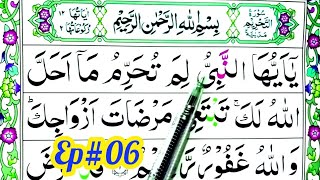 سُورَةُ التَّحْرِيمِ
بِسْمِ اللهِ الرَّحْمٰنِ الرَّحِيْمِ
يٰۤاَيُّهَا النَّبِيُّ لِمَ تُحَرِّمُ مَاۤ اَحَلَّ
اللهُ لَكَ ۚ تَبْتَغِيْ مَرْضَاتَ اَزْوَاجِكَ ؕ
وَاللهُ غَفُوْرٌ
Ep#06